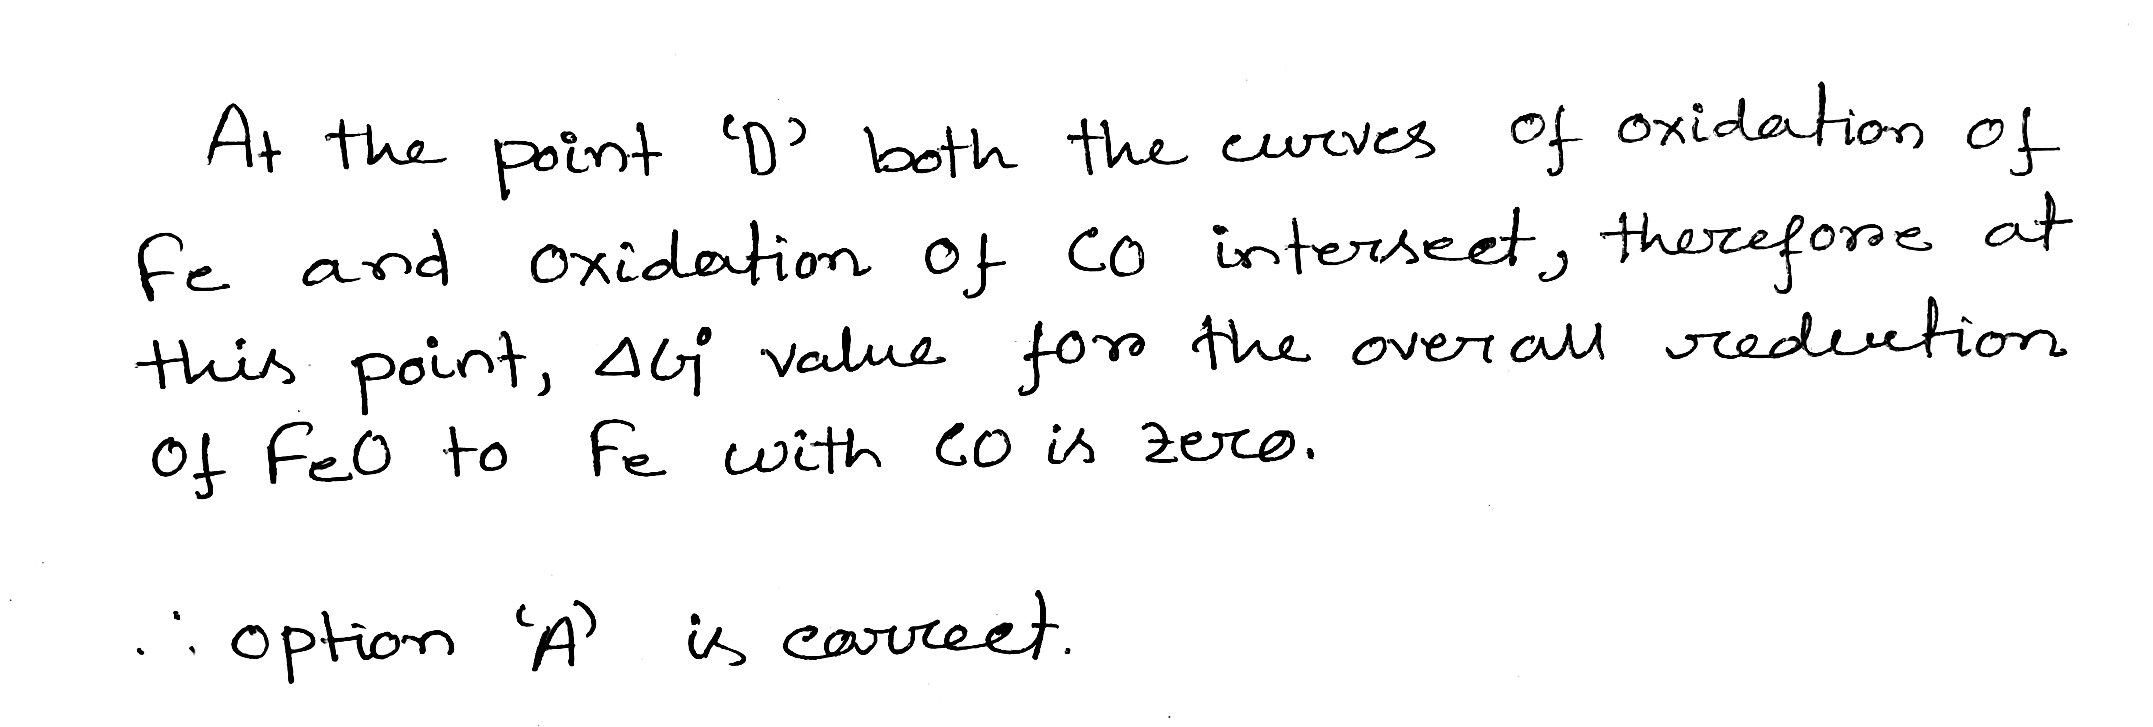 At the point 'D' both the curves of oxidation of
Fe and oxidation of CO intersect, therefore at
this point, ΔG° value for the overall reduction
of FeO to Fe with CO is zero.
∴ option 'A' is correct.